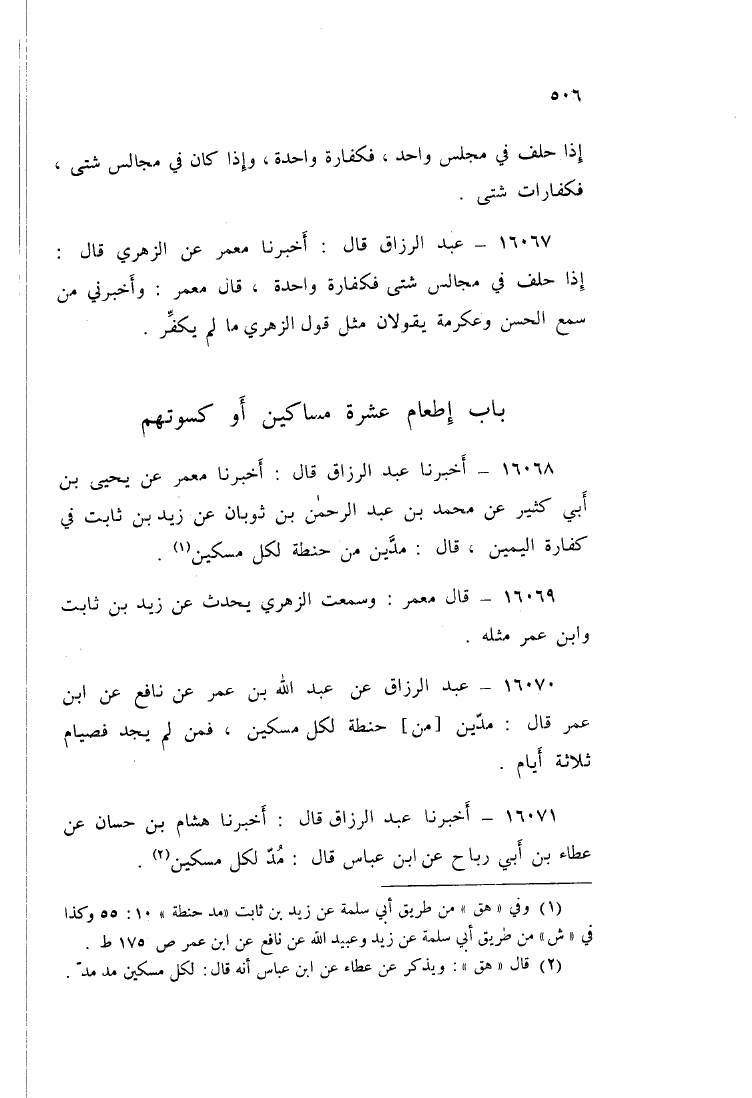 ٥٠٦
إذا حلف في مجلس واحد ، فكفارة واحدة ، وإذا كان في مجالس شتى ،
فكفارات شتى .
١٦٠٦٧ – عبد الرزاق قال : أخبرنا معمر عن الزهري قال :
إذا حلف في مجالس شتى فكفارة واحدة ، قال معمر : وأخبرني من
سمع الحسن وعكرمة يقولان مثل قول الزهري ما لم يكفِّر .
باب إطعام عشرة مساكين أو كسوتهم
١٦٠٦٨ – أخبرنا عبد الرزاق قال : أخبرنا معمر عن يحيى بن
أبي كثير عن محمد بن عبد الرحمٰن بن ثوبان عن زيد بن ثابت في
كفارة اليمين ، قال : مدَّين من حنطة لكل مسكين(١) .
١٦٠٦٩ – قال معمر : وسمعت الزهري يحدث عن زيد بن ثابت
وابن عمر مثله .
١٦٠٧٠ – عبد الرزاق عن عبد الله بن عمر عن نافع عن ابن
عمر قال : مدّين [من] حنطة لكل مسكين ، فمن لم يجد فصيام
ثلاثة أيام .
١٦٠٧١ – أخبرنا عبد الرزاق قال : أخبرنا هشام بن حسان عن
عطاء بن أبي رباح عن ابن عباس قال : مُدّ لكل مسكين(٢) .
(١) وفي « هق » من طريق أبي سلمة عن زيد بن ثابت «مد حنطة » ١٠: ٥٥ وكذا
في « ش» من طريق أبي سلمة عن زيد وعبيد الله عن نافع عن ابن عمر ص ١٧٥ ط .
(٢) قال « هق » : ويذكر عن عطاء عن ابن عباس أنه قال: لكل مسكين مد مدّ .